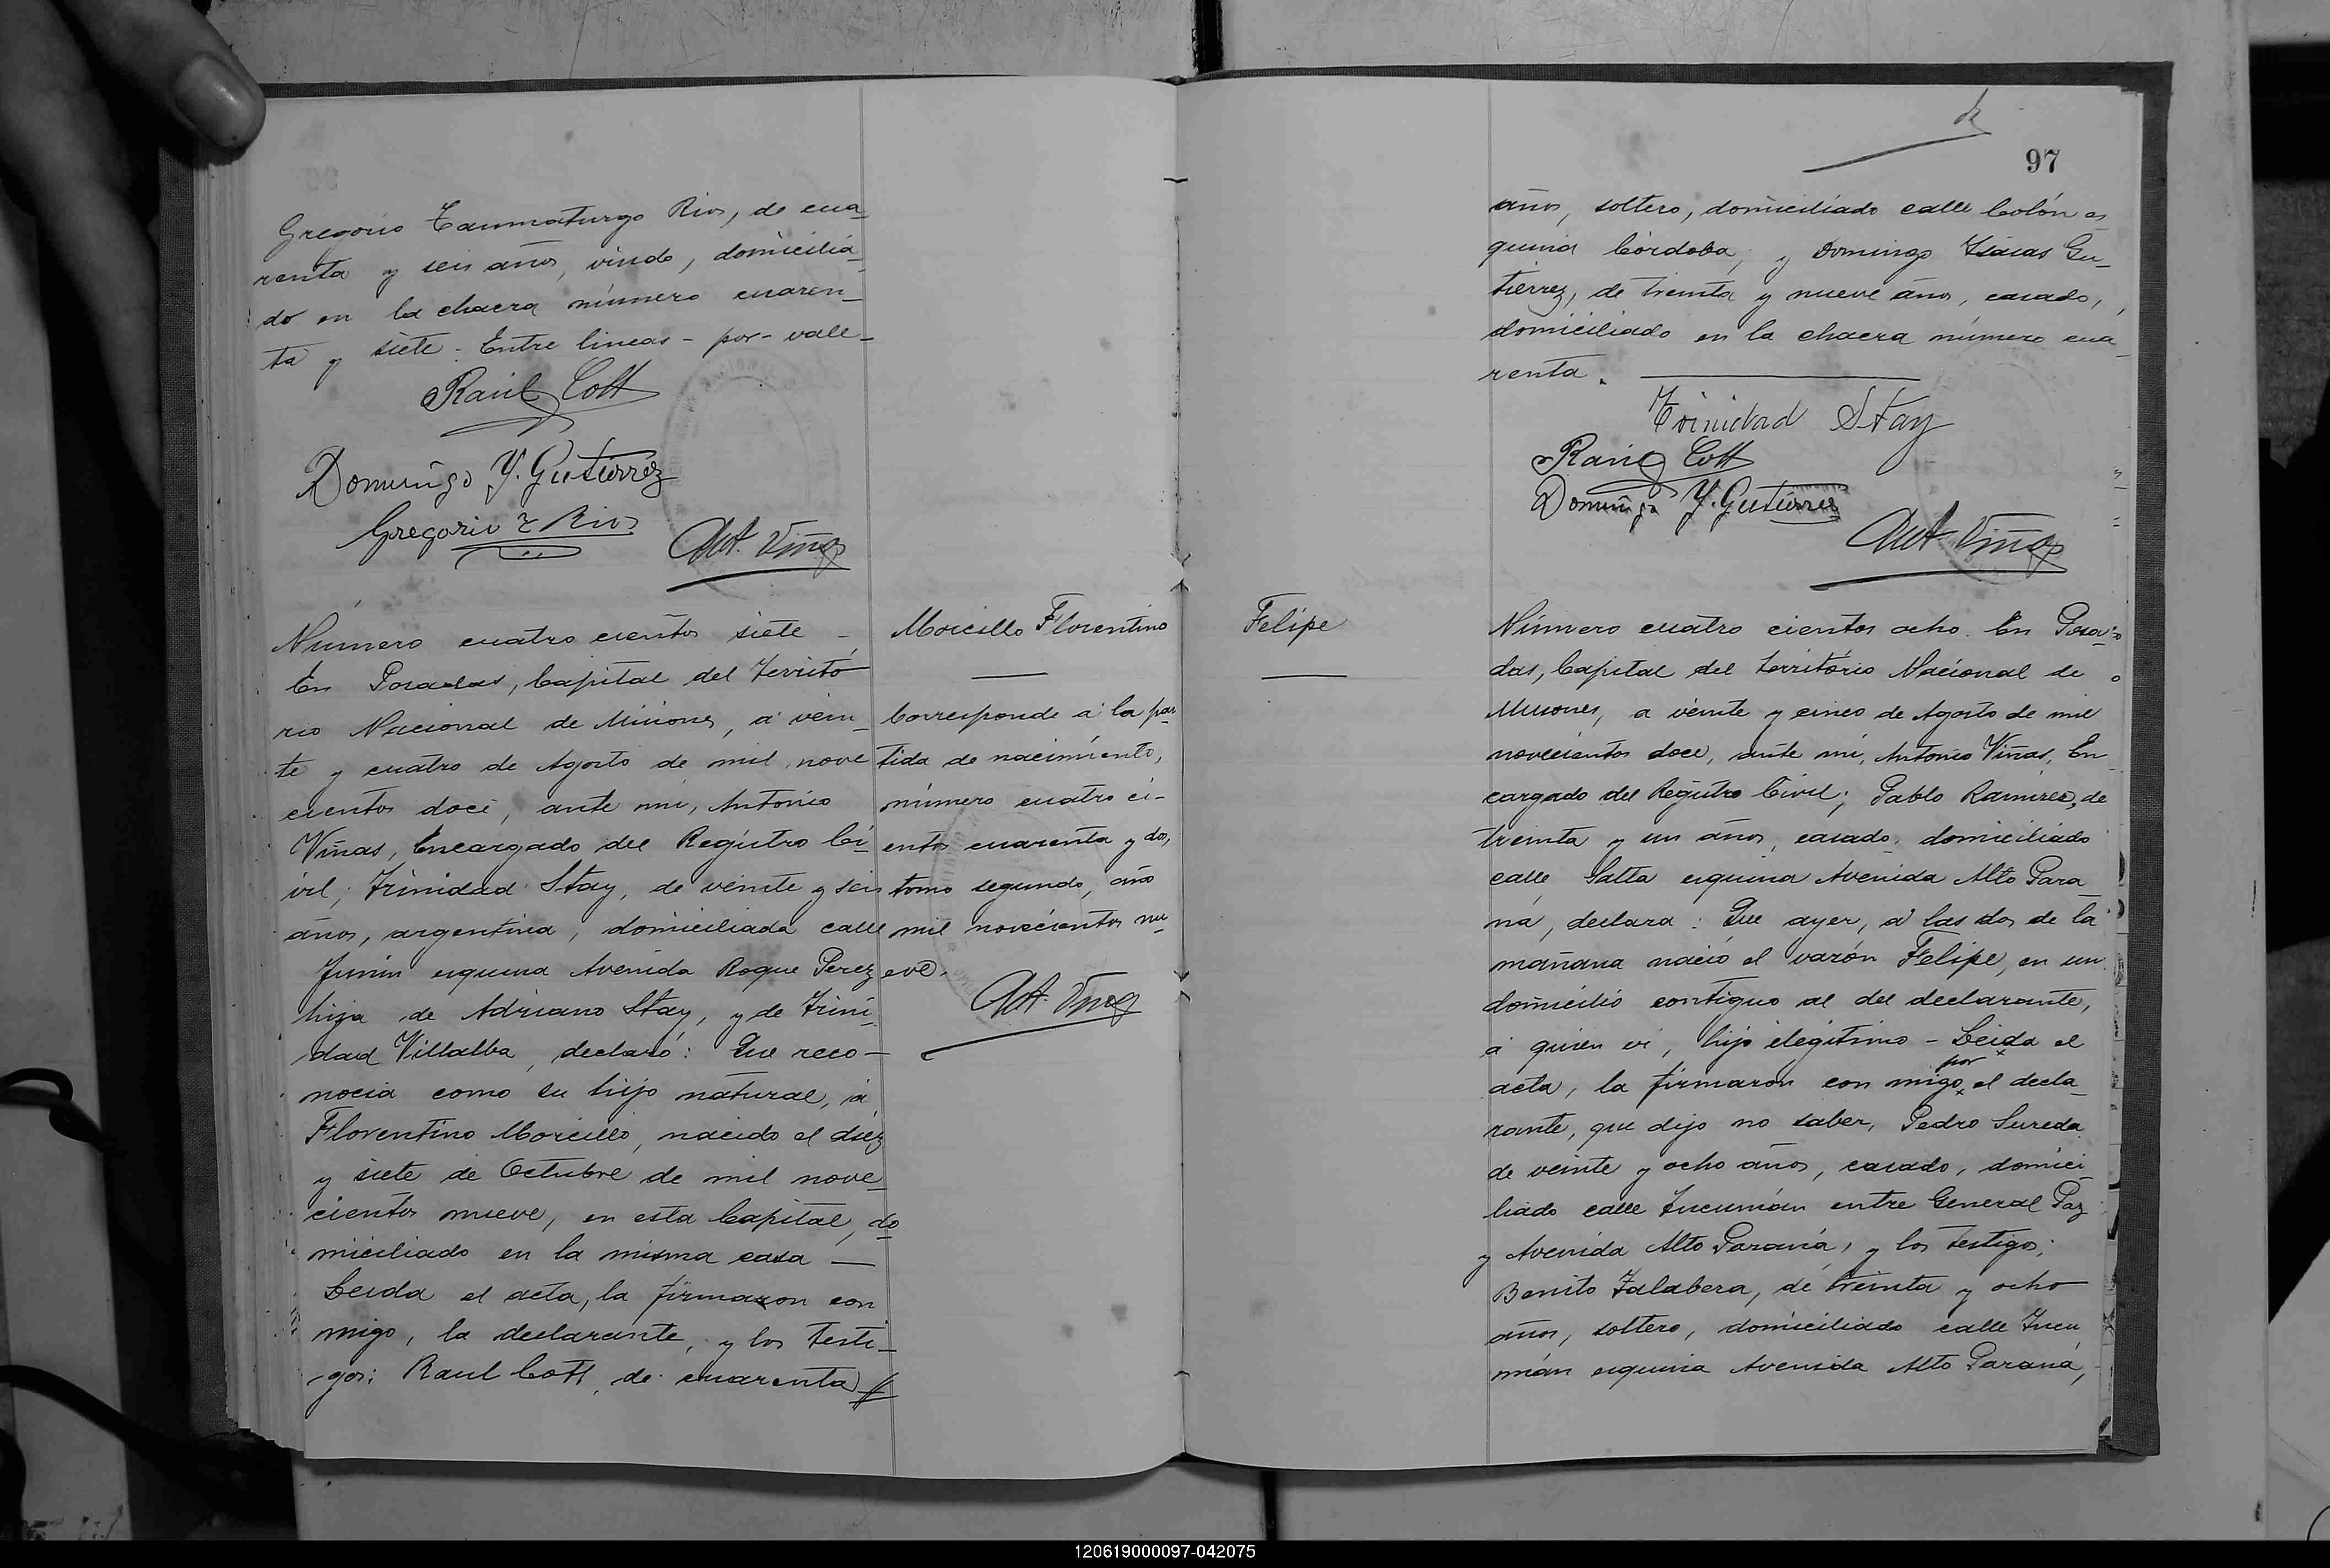 Gregorio Taumaturgo Rios, de cua
renta y seis años, viudo, domicilia
do en la chacra número cuaren_
ta y siete - Entre lineas - por - vale_
Raúl Cott
Domingo Y. Gutierrez
Gregorio T Rios
Ant. Viñas
Número cuatro cientos siete _
En Posadas, Capital del Territo
rio Nacional de Misiones, á vein_
te y cuatro de Agosto de mil nove
cientos doce, ante mi, Antonio
Viñas, Encargado del Registro Ci
vil; Trinidad Stay, de veinte y seis
años, argentina, domiciliada calle
Junin esquina Avenida Roque Perez
hija de Adriano Stay, y de Trini
dad Villalba, declaró: Que reco-
nocia como su hijo natural, á
Florentino Morcillo, nacido el diez
y siete de Octubre de mil nove
cientos nueve, en esta Capital, do
miciliado en la misma casa —
Leida el acta, la firmaron con
migo, la declarante, y los testi_
gos: Raul Cott, de cuarenta
Morcillo Florentino
Corresponde á la par
tida de nacimiento,
número cuatro ci-
entos cuarenta y dos,
tomo segundo, año
mil novecientos nu
eve.
Ant. Viñas
97
años, soltero, domiciliado calle Colón es
quina Córdoba; y Domingo Isaias Gu_
tierrez, de treinta y nueve años, casado,
domiciliado en la chacra número cua_
renta.
Trinidad Stay
Raúl Cott
Domingo Y. Gutierrez
Ant Viñas
Felipe
Número cuatro cientos ocho. En Posa
das, Capital del Territorio Nacional de
Misiones, a veinte y cinco de Agosto de mil
novecientos doce, ante mi, Antonio Viñas, En
cargado del Registro Civil; Pablo Ramirez, de
treinta y un años, casado, domiciliado
calle Salta esquina Avenida Alto Para
ná, declara: Que ayer, á las dos de la
mañana nació el varón Felipe, en un
domicilio contiguo al del declarante,
á quien vi, hijo ilegitimo - Leida el
por
acta, la firmaron con migo, el decla_
rante, que dijo no saber, Pedro Sureda
de veinte y ocho años, casado, domici
liado calle Tucumán entre General Paz
y Avenida Alto Paraná, y los testigos;
Benito Zalabera, de treinta y ocho
años, soltero, domiciliado calle Tucu
mán esquina Avenida Alto Paraná,
120619000097-042075